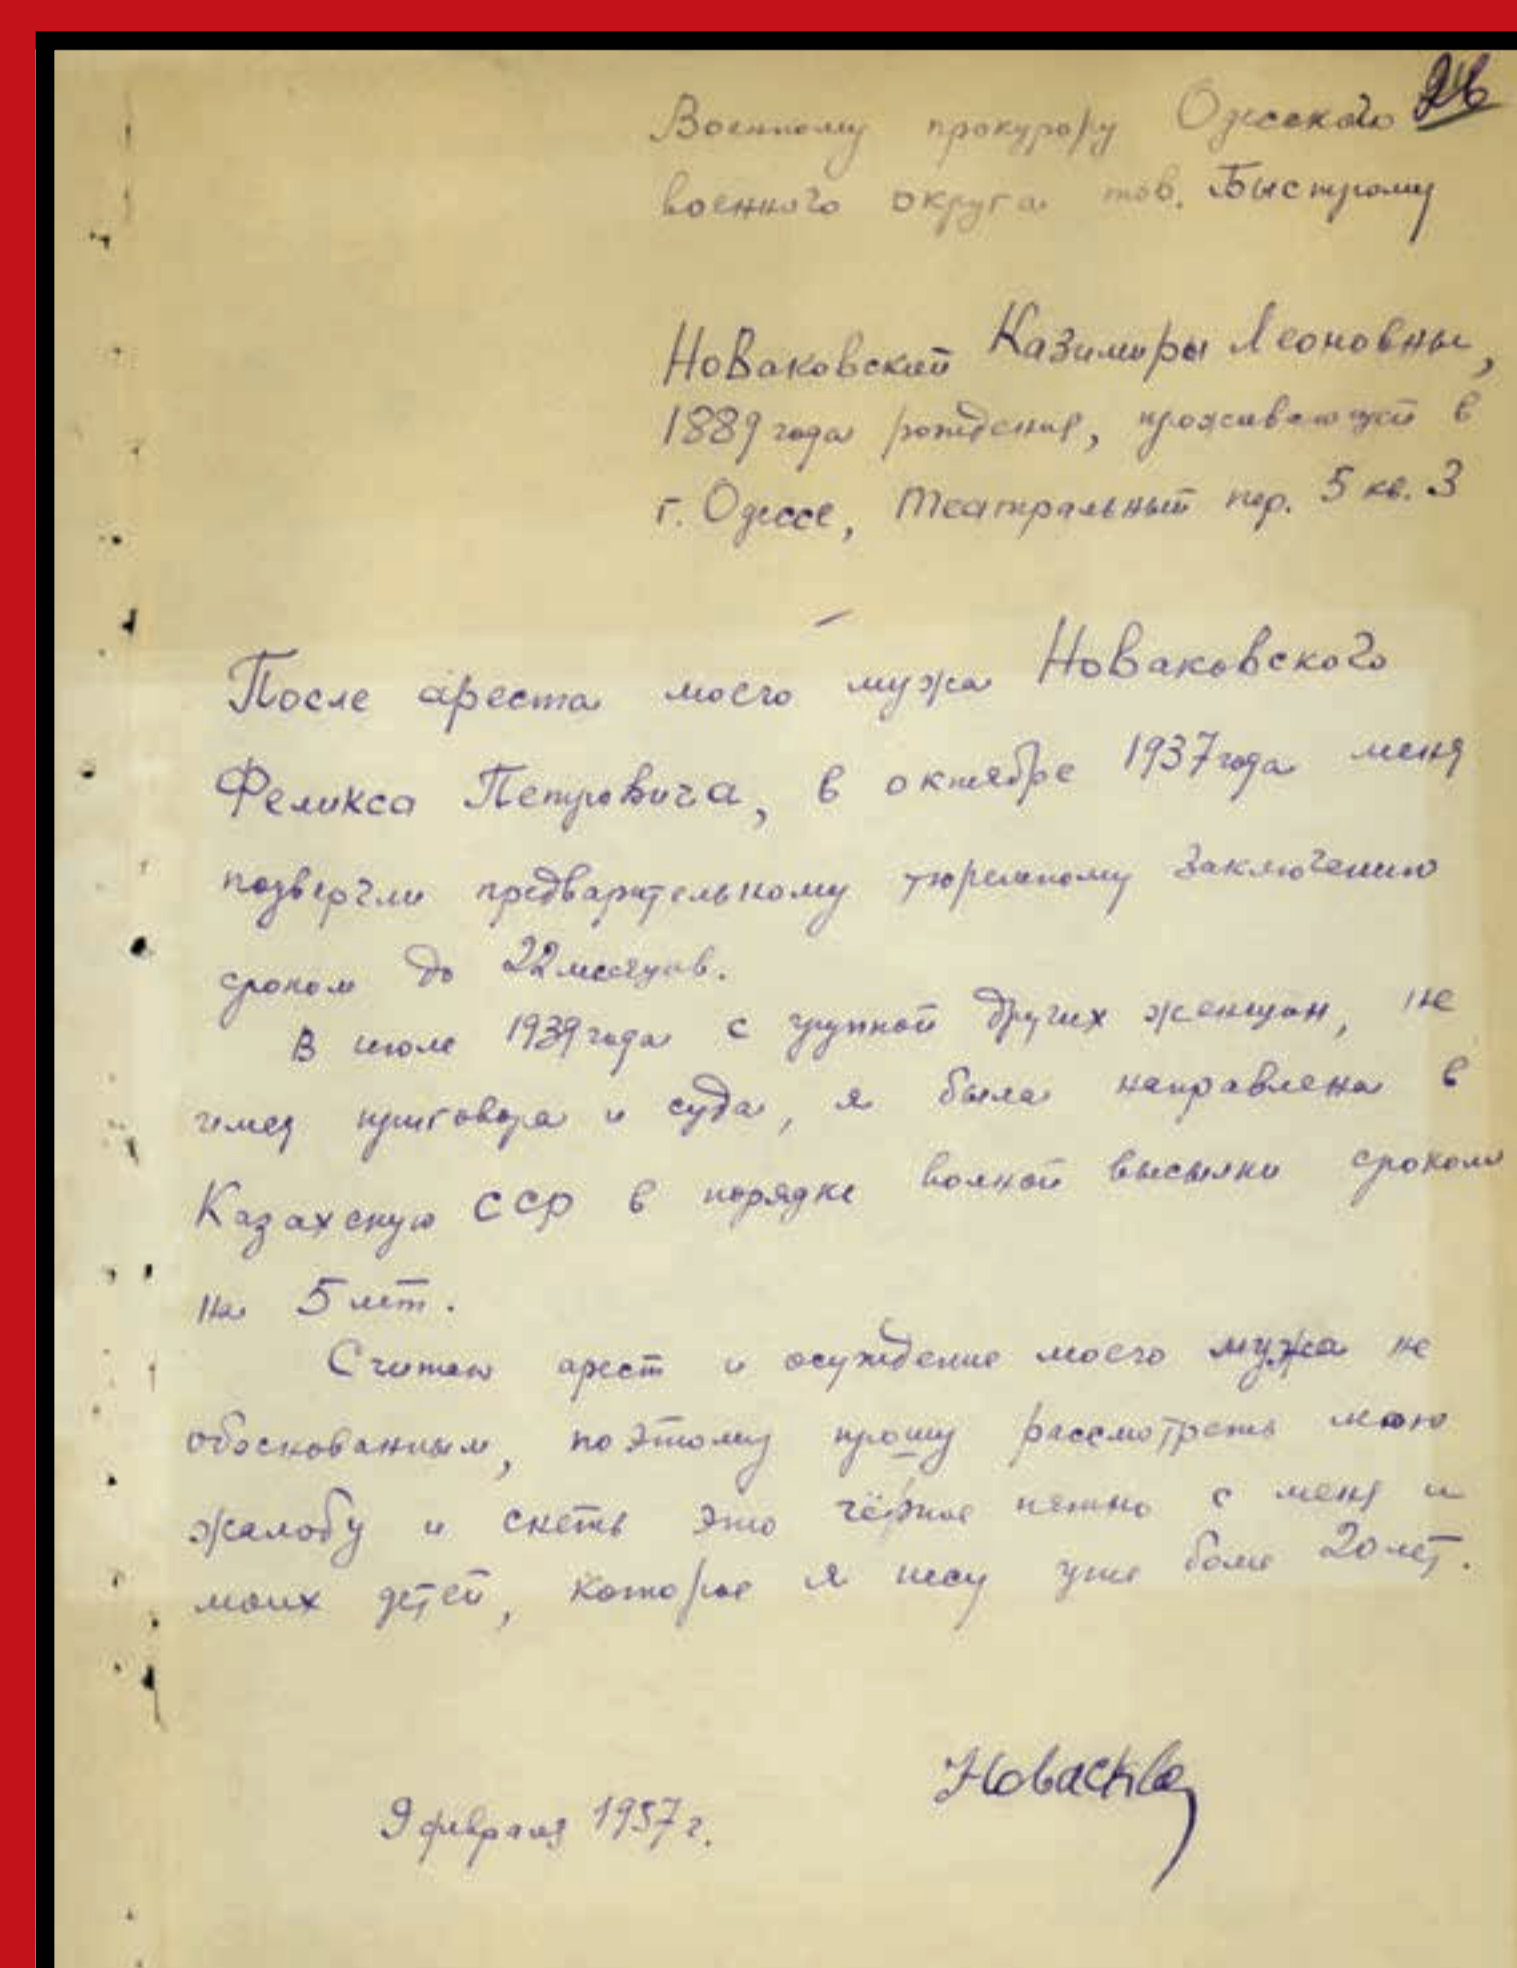 26
Военному прокурору Одесского
военного округа тов. Быстрому
Новаковский Казимиры Леоновны,
1889 года рождения, проживающей в
г. Одессе, Театральный пер. 5 кв. 3
После ареста моего мужа Новаковского
Феликса Петровича, в октябре 1937 года меня
подвергли предварительному тюремному заключению
сроком до 22 месяцев.
В июле 1939 года с группой других женщин, не
имея приговора и суда, я была направлена в
Казахскую ССР в порядке вольной высылки сроком
на 5 лет.
Считаю арест и осуждение моего мужа не
обоснованным, поэтому прошу рассмотреть мою
жалобу и снять это чёрное пятно с меня и
моих детей, которое я несу уже более 20 лет.
9 февраля 1957 г.